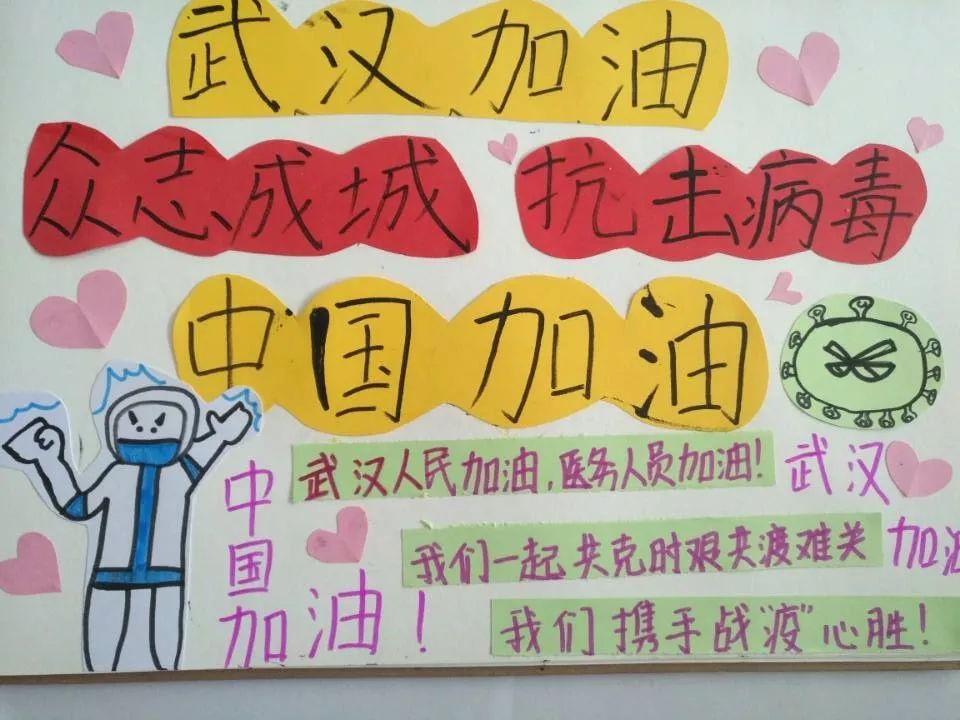 武汉加油
众志成城 抗击病毒
中国加油
武汉人民加油,医务人员加油!
我们一起共克时艰共渡难关
我们携手战"疫"心胜!
武汉
加油
中国
加油!